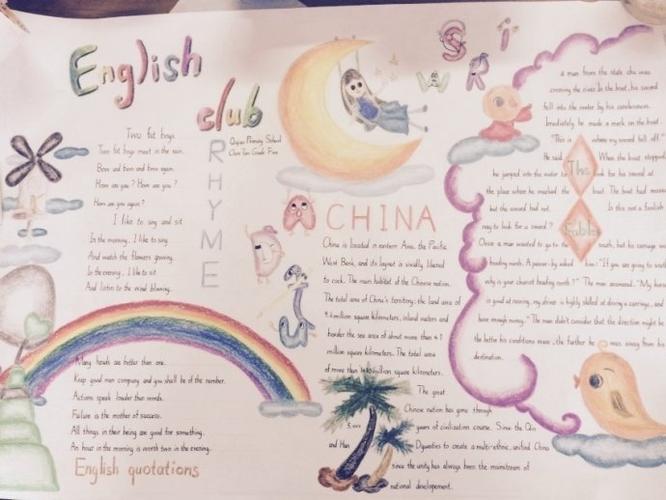 English
club
Qiqiao Primary School
Class Two Grade Five
Two fat boys
Two fat boys meet in the rain.
Bow and bow and bow again.
How are you? How are you?
How are you again?
I like to sing and sit
In the morning, I like to sing
And watch the flowers growing.
In the evening, I like to sit
And listen to the wind blowing.
RHYME
Many heads are better than one.
Keep good men company and you shall be of the number.
Actions speak louder than words.
Failure is the mother of success.
All things in their being are good for something.
An hour in the morning is worth two in the evening.
English quotations
CHINA
China is located in eastern Asia, the Pacific
West Bank, and its layout is vividly likened
to cock. The main habitat of the Chinese nation.
The total area of China's territory: the land area of
9.6 million square kilometers, inland waters and
border the sea area of about more than 4.7
million square kilometers. The total area
of more than million square kilometers.
The great
Chinese nation has gone through
5,000 years of civilization course. Since the Qin
and Han Dynasties to create a multi-ethnic, unified China
since the unity has always been the mainstream of
national development.
The
Fable
a man from the state chu was
crossing the river. In the boat, his sword
fell into the water by his carelessness.
Immediately he made a mark on the boat.
"This is where my sword fell off."
He said. When the boat stopped
he jumped into the water to look for his sword at
the place where he marked the boat. The boat had moved
but the sword had not. Is this not a foolish
way to look for a sword?
Once a man wanted to go to the south, but his carriage was
heading north. A passer-by asked him: "If you are going to south
why is your chariot heading north?" The man answered, "My horse
is good at running, my driver is highly skilled at driving a carriage, and I
have enough money." The man didn't consider that the direction might be
the better his conditions were, the further he was away from his
destination.